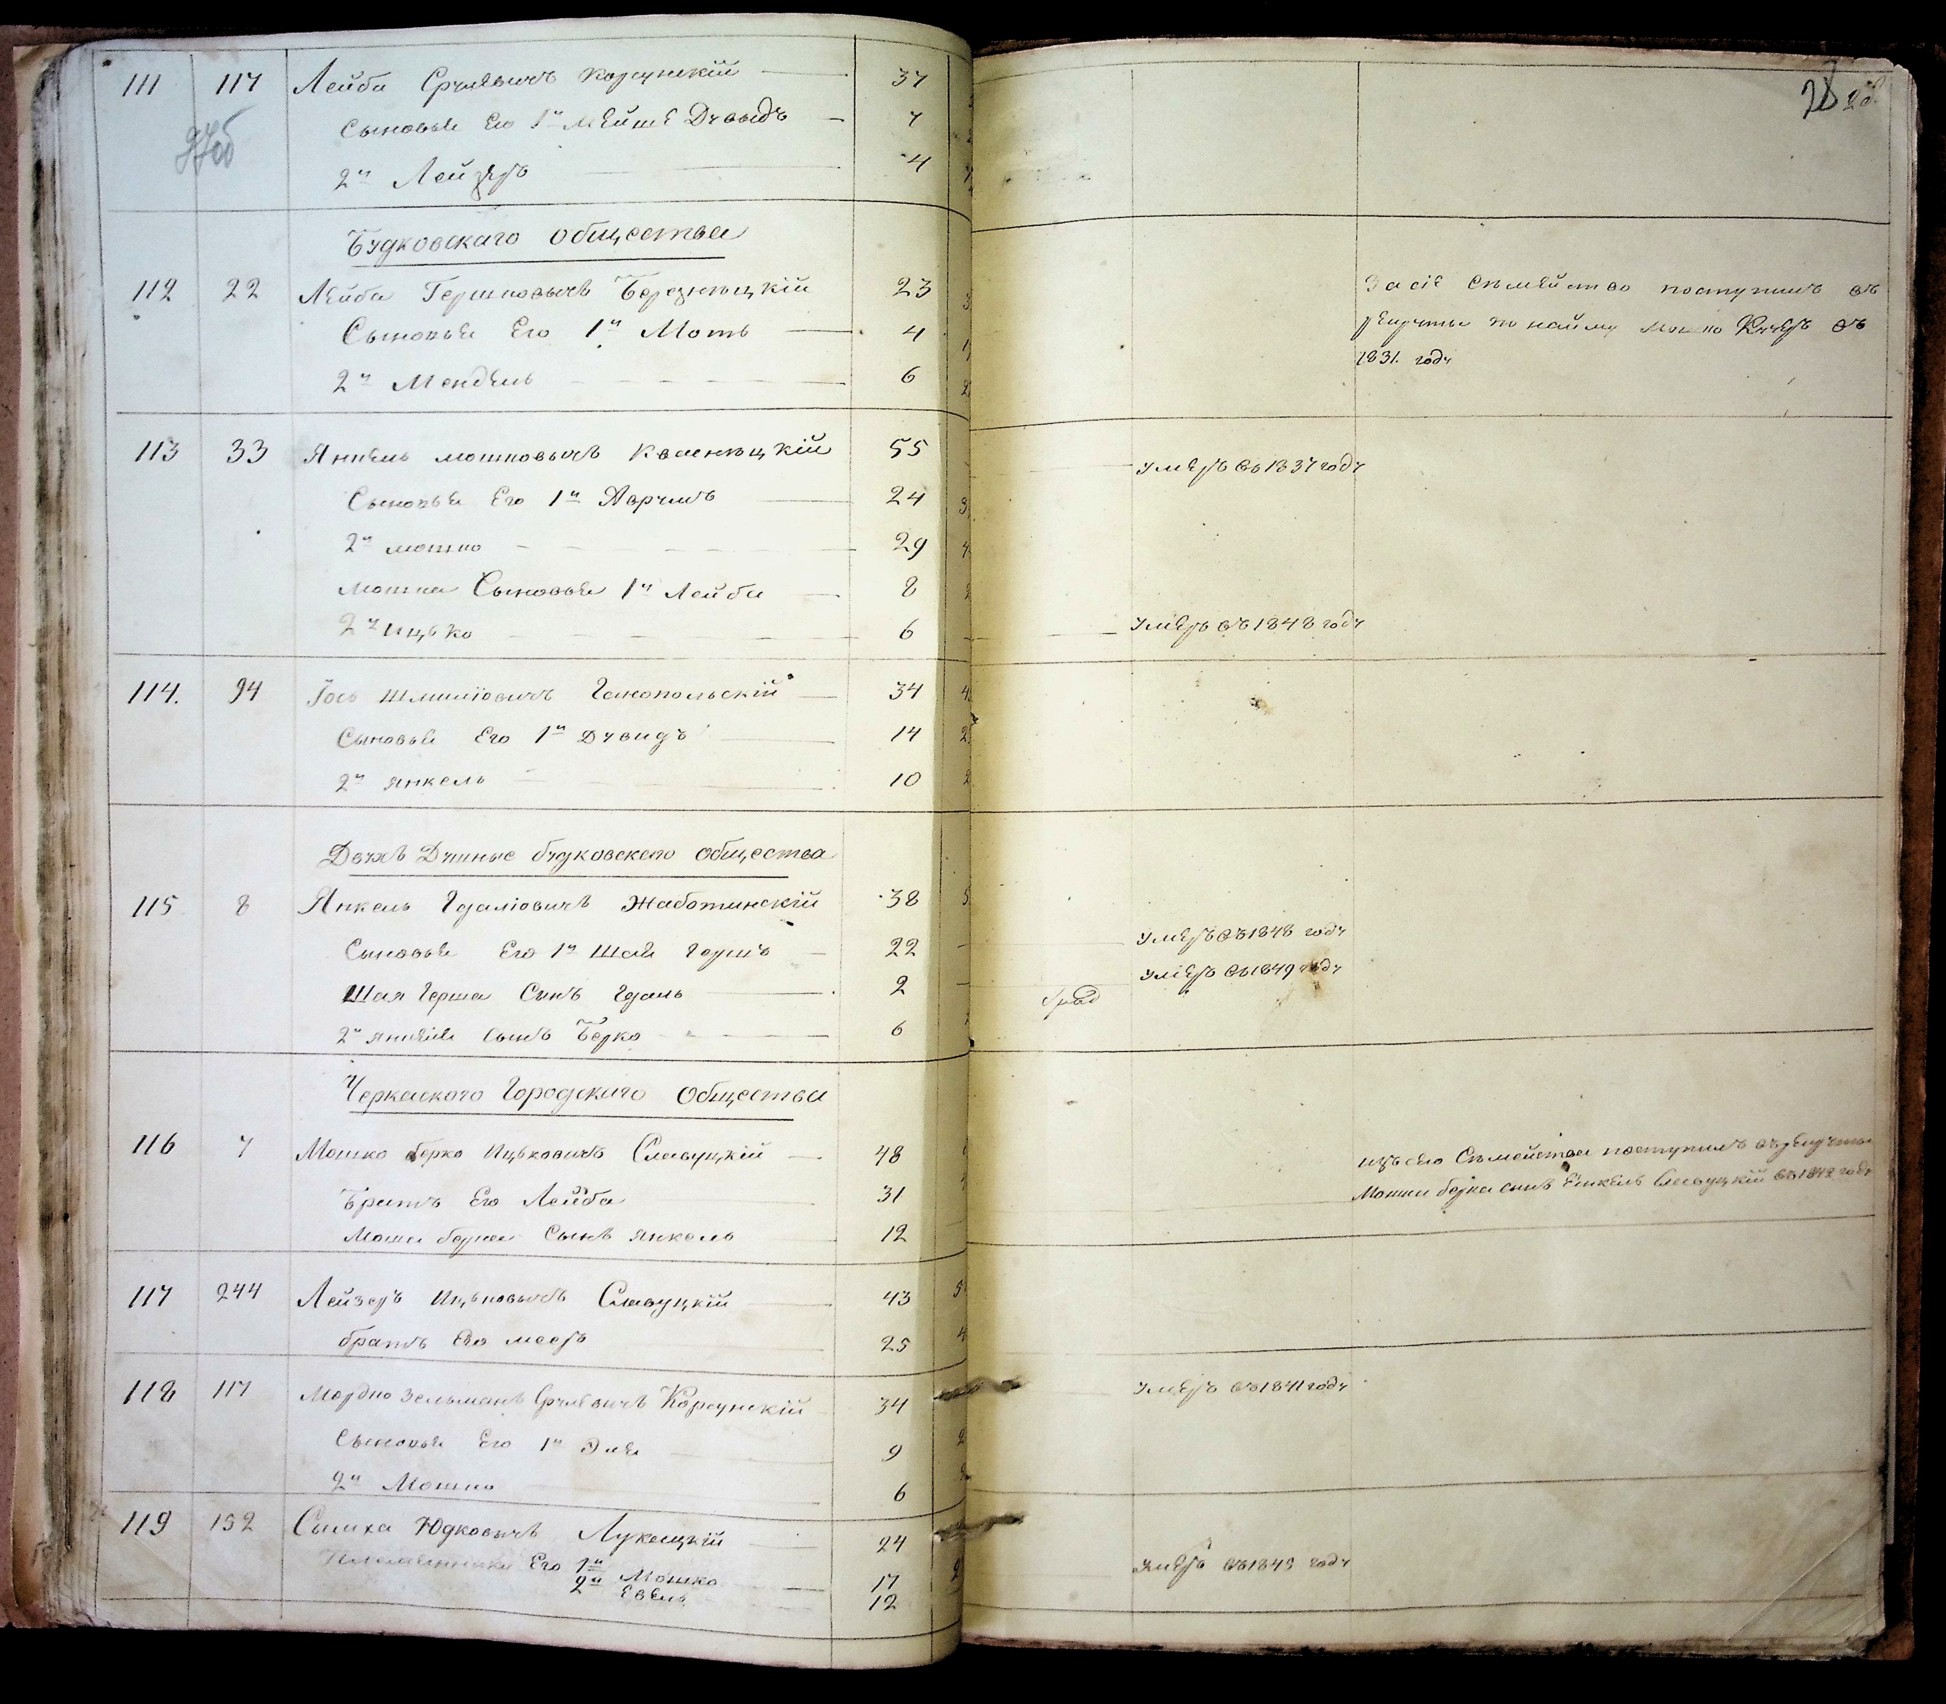 111 117 Лейба Сруліовичъ Корсунскій 37
Сыновья Его 1й Мейше Давыдъ 7
2й Лейзеръ 4
Будковскаго общества
112 22 Лейба Гершковичъ Березнецкій 23
Сыновья Его 1й Моть 4
2й Мендель 6
113 33 Янкель Мошковичъ 55
Сыновья Его 1й Аврумъ 24
2й Мошко 29
Мошка Сыновья 1й Лейба 8
2й Ицько 6
114. 94 Іось Шмиліовичъ 34
Сыновья Его 1й Давидъ 14
2й Янкель 10
будковского общества
115 8 Янкель Гдаліовичъ Жаботинскій 38
Сыновья Его 1й Шая Гершъ 22
Шая Герша Сынъ Гдаль 2
2й Янкеля Сынъ Берко 6
Черкаского Городскаго Общества
116 7 Мошко Берко Ицьковичъ Славуцкій 48
Братъ Его Лейба 31
Мошки Берки Сынъ Янкель 12
117 244 Лейзеръ Ицьковичъ Славуцкій 43
братъ Его Мееръ 25
118 117 Мордко Зельманъ Сруліовичъ Корсунскій 34
Сыновья Его 1й Эля 9
2й Мошко 6
119 152 Сымха Юдковичъ 24
Племянники Его 1й Мошко 17
2й Евель 12
28
За сіе Семейство поступилъ въ
рекруты по найму въ
1831. году
умеръ въ 1837 году
умеръ въ 1848 году
умеръ въ 1848 году
умеръ въ 1849 году
изъ сего Семейства поступилъ въ рекруты
Мошки берка сынъ Янкель Славуцкій въ 1842 году
умеръ въ 1841 году
умеръ въ 1843 году